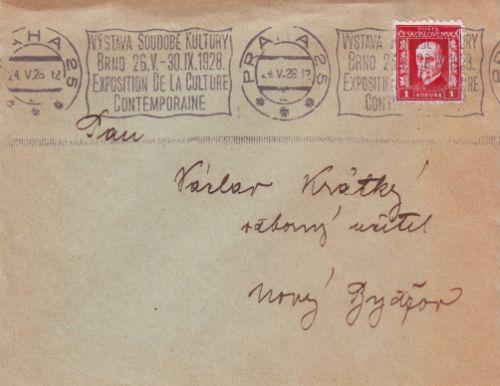 PRAHA 25
24. V. 28. 12
VÝSTAVA SOUDOBÉ KULTURY
BRNO 26.V.-30.IX.1928.
EXPOSITION DE LA CULTURE
CONTEMPORAINE
PRAHA 25
24. V. 28. 12
POŠTA
ČESKOSLOVENSKÁ
1 KORUNA 1
Pan
Václav Krátký
odborný učitel
Nový Bydžov